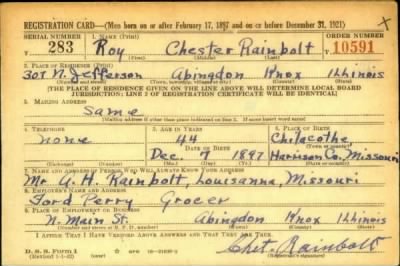 REGISTRATION CARD—(Men born on or after February 17, 1897 and on or before December 31, 1921)
SERIAL NUMBER 1. NAME (Print) ORDER NUMBER
283 Roy Chester Rainbolt 10591
(First) (Middle) (Last)
2. PLACE OF RESIDENCE (Print)
307 N. Jefferson Abingdon Knox Illinois
[THE PLACE OF RESIDENCE GIVEN ON THE LINE ABOVE WILL DETERMINE LOCAL BOARD
JURISDICTION; LINE 2 OF REGISTRATION CERTIFICATE WILL BE IDENTICAL]
3. MAILING ADDRESS
Same
[Mailing address if other than place indicated on line 2. If same insert word same]
4. TELEPHONE 5. AGE IN YEARS 6. PLACE OF BIRTH
none 44 Chilacothe
DATE OF BIRTH (Town or county)
Dec. 7 1897 Harrison Co. Missouri
(Exchange) (Number) (Mo.) (Day) (Yr.) (State or country)
7. NAME AND ADDRESS OF PERSON WHO WILL ALWAYS KNOW YOUR ADDRESS
Mr A. H. Rainbolt, Louisanna, Missouri
8. EMPLOYER'S NAME AND ADDRESS
Ford Perry Grocer
9. PLACE OF EMPLOYMENT OR BUSINESS
N. Main St. Abingdon Knox Illinois
(Number and street or R. F. D. number) (Town) (County) (State)
I AFFIRM THAT I HAVE VERIFIED ABOVE ANSWERS AND THAT THEY ARE TRUE.
D. S. S. Form 1
(Revised 1-1-42) (over)
Chet. Rainbolt